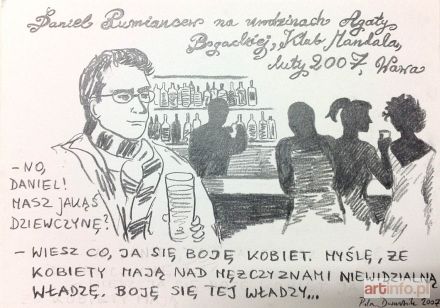 Daniel Rumiancew na urodzinach Agaty
Bogackiej, Klub Mandala,
luty 2007, Wawa
- NO,
DANIEL!
MASZ JAKĄŚ
DZIEWCZYNĘ?
- WIESZ CO, JA SIĘ BOJĘ KOBIET. MYŚLĘ, ŻE
KOBIETY MAJĄ NAD MĘŻCZYZNAMI NIEWIDZIALNĄ
WŁADZĘ. BOJĘ SIĘ TEJ WŁADZY...
artinfo.pl
2007